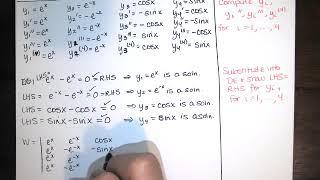 y₁' = eˣ
y₁'' = eˣ
y₁''' = eˣ
y₁⁽⁴⁾ = eˣ
y₂' = -e⁻ˣ
y₂'' = e⁻ˣ
y₂''' = -e⁻ˣ
y₂⁽⁴⁾ = e⁻ˣ
y₃'' = -cosx
y₃''' = sinx
y₃⁽⁴⁾ = cosx
y₄'' = -sinx
y₄''' = -cosx
y₄⁽⁴⁾ = sinx
Compute yᵢ',
yᵢ'', yᵢ''', yᵢ⁽⁴⁾
for i=1,...,4
DE: LHS = eˣ - eˣ = 0 = RHS ⟹ y₁ = eˣ is a soln.
LHS = e⁻ˣ - e⁻ˣ = 0 ⟹ y₂ = e⁻ˣ is a soln.
LHS = cosx - cosx = 0 ⟹ y₃ = cosx is a soln.
LHS = sinx - sinx = 0 ⟹ y₄ = sinx is a soln.
Substitute into
DE & show LHS=
RHS for yᵢ,
for i=1,...,4
W = | eˣ e⁻ˣ cosx
eˣ -e⁻ˣ -sinx
eˣ e⁻ˣ
eˣ -e⁻ˣ